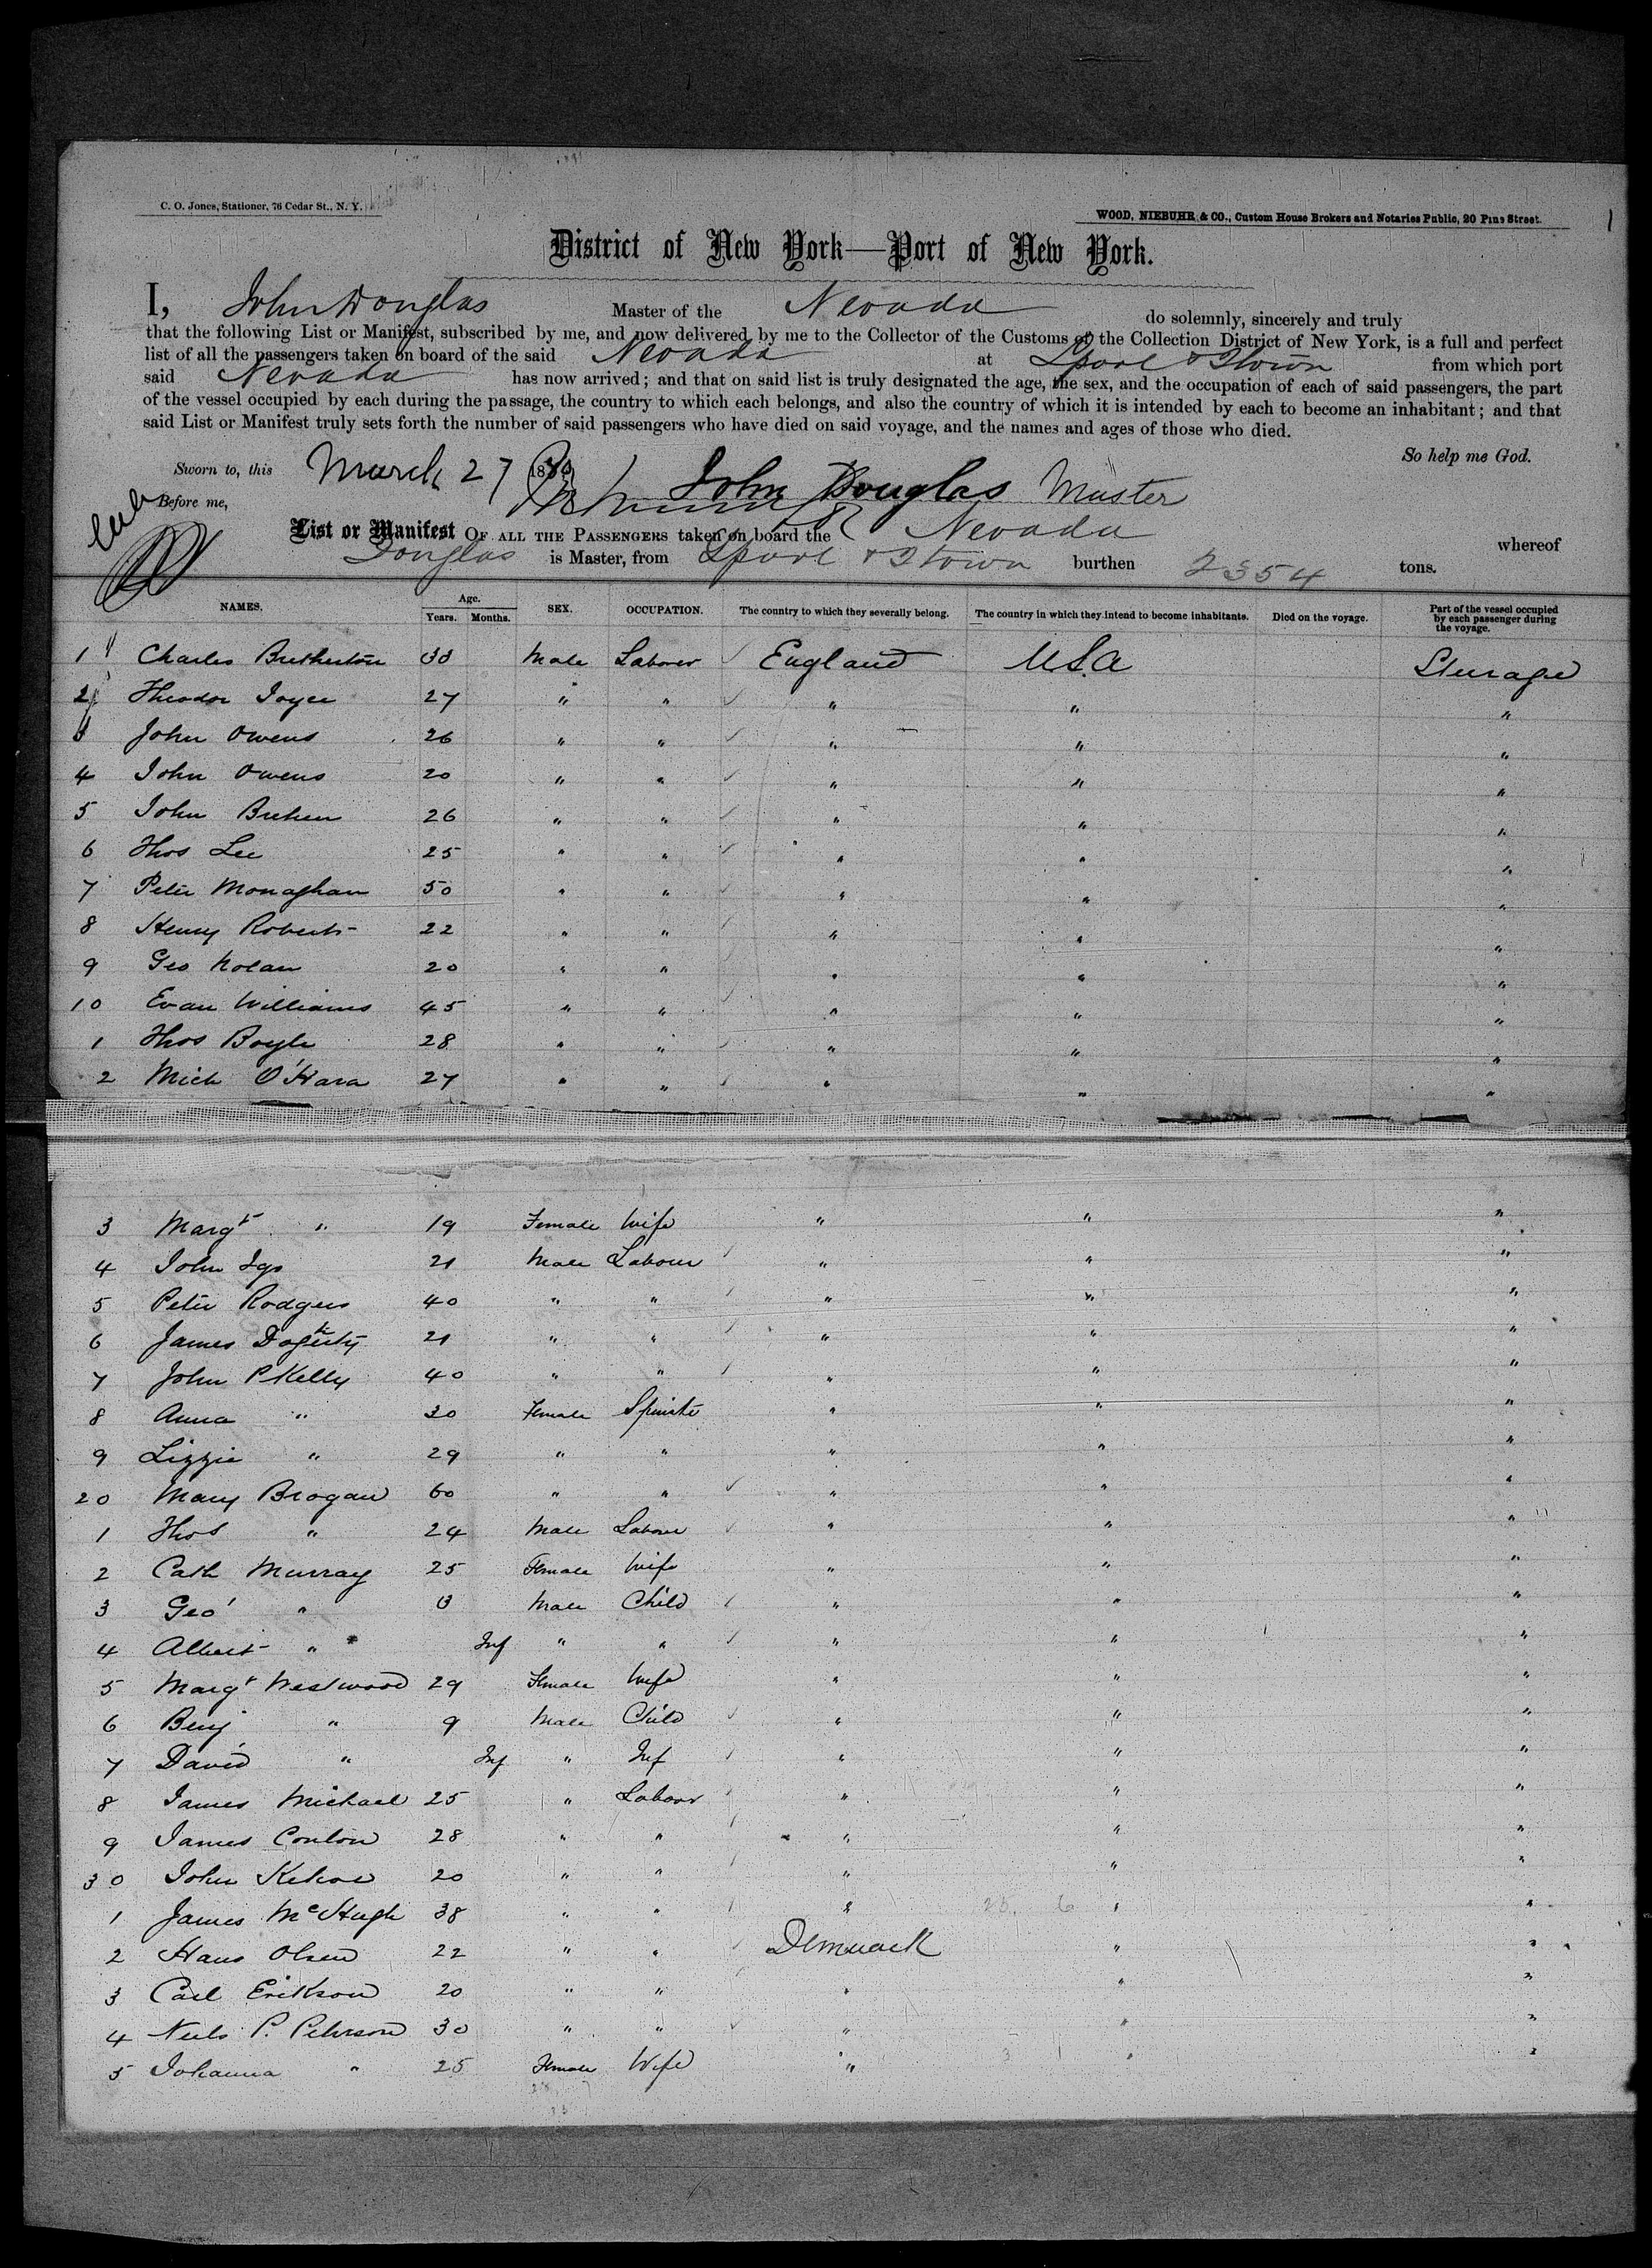 C. O. Jones, Stationer, 76 Cedar St., N. Y.
WOOD, NIEBUHR & CO., Custom House Brokers and Notaries Public, 20 Pine Street.
1
District of New York—Port of New York.
I, John Douglas Master of the Nevada do solemnly, sincerely and truly
that the following List or Manifest, subscribed by me, and now delivered by me to the Collector of the Customs of the Collection District of New York, is a full and perfect
list of all the passengers taken on board of the said Nevada at Lpool & Qtown from which port
said Nevada has now arrived; and that on said list is truly designated the age, the sex, and the occupation of each of said passengers, the part
of the vessel occupied by each during the passage, the country to which each belongs, and also the country of which it is intended by each to become an inhabitant; and that
said List or Manifest truly sets forth the number of said passengers who have died on said voyage, and the names and ages of those who died.
So help me God.
Sworn to, this March 27 18
John Douglas Master
Before me,
List or Manifest OF ALL THE PASSENGERS taken on board the Nevada whereof
Douglas is Master, from Lpool & Qtown burthen 2354 tons.
NAMES. Age. Years. Months. SEX. OCCUPATION. The country to which they severally belong. The country in which they intend to become inhabitants. Died on the voyage. Part of the vessel occupied by each passenger during the voyage.
1 Charles Brutherton 33 Male Labourer England USA Steerage
2 Theodor Joyce 27 " " " " "
3 John Owens 26 " " " " "
4 John Owens 20 " " " " "
5 John Brehen 26 " " " " "
6 Thos Lee 25 " " " " "
7 Peter Monaghan 50 " " " " "
8 Henry Roberts 22 " " " " "
9 Geo Nolan 20 " " " " "
10 Evan Williams 45 " " " " "
1 Thos Boyle 28 " " " " "
2 Mich O'Hara 27 " " " " "
3 Margt " 19 Female Wife " " "
4 John 21 Male Labour " " "
5 Peter Rodgers 40 " " " " "
6 James Doherty 21 " " " " "
7 John P Kelly 40 " " " " "
8 Anna " 30 Female Spinster " " "
9 Lizzie " 29 " " " " "
20 Mary Brogan 60 " " " " "
1 Thos " 24 Male Labour " " "
2 Cath Murray 25 Female Wife " " "
3 Geo " Male Child " " "
4 Albert " Inf " " " " "
5 Margt Westwood 29 Female Wife " " "
6 Benj " 9 Male Child " " "
7 David " Inf " Inf " " "
8 James Michael 25 " Labour " " "
9 James Conlon 28 " " " " "
30 John Kehoe 20 " " " " "
1 James McHugh 38 " " " 25. 6 " "
2 Hans Olsen 22 " " Denmark " "
3 Carl Erikson 20 " " " " "
4 Neils P. Peterson 30 " " " " "
5 Johanna " 25 Female Wife " 3 1 " "